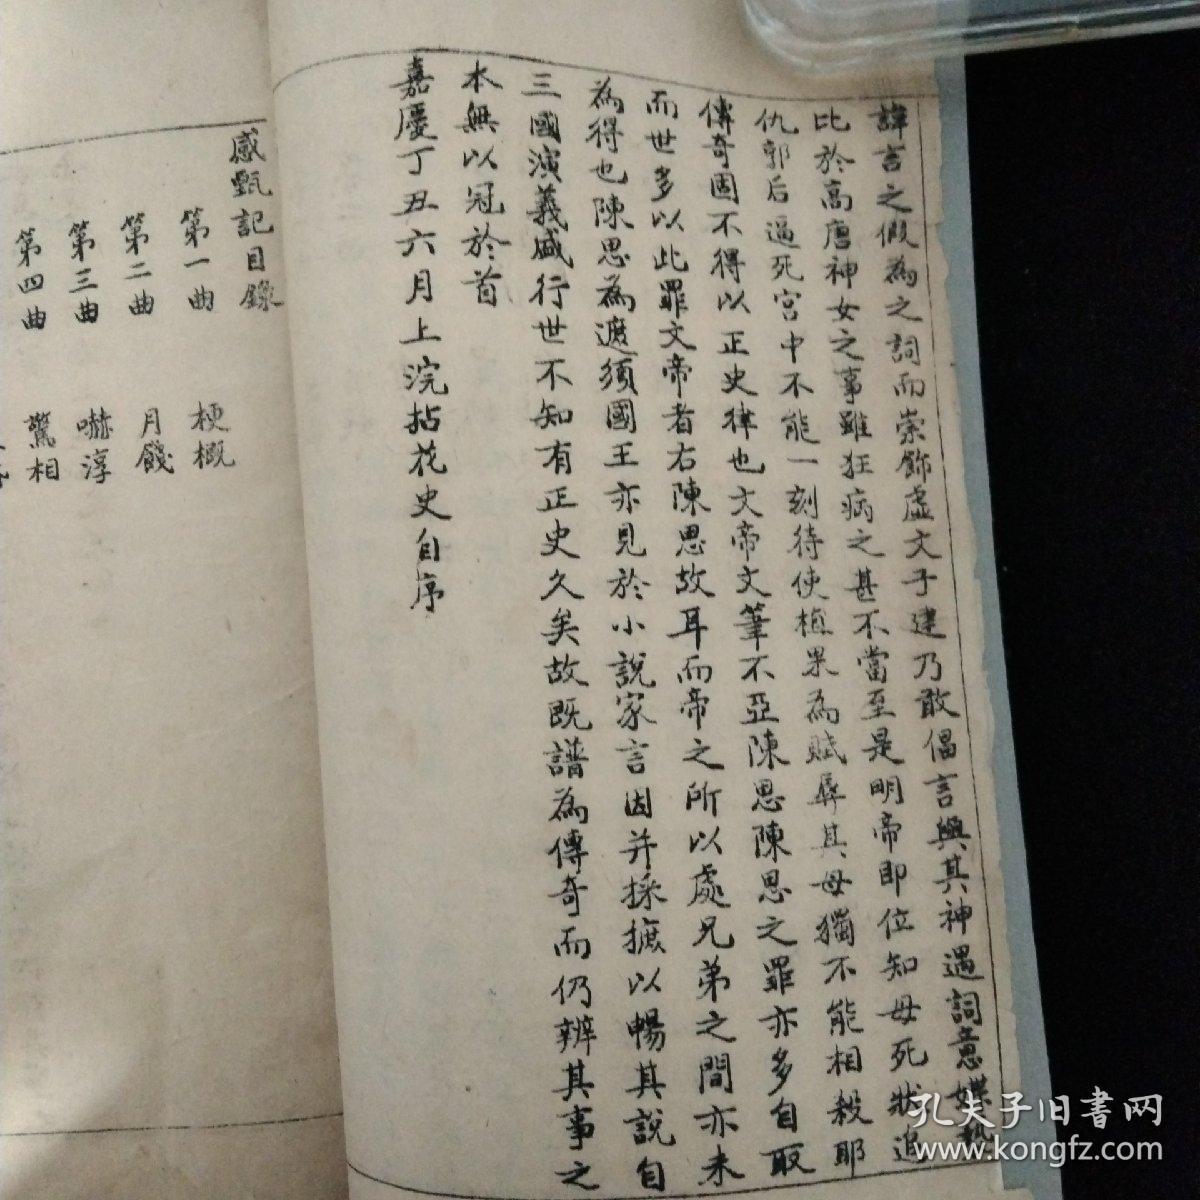 諱言之假為之詞而崇飾虛文子建乃敢倡言與其神遇詞意媟
比於高唐神女之事雖狂病之甚不當至是明帝即位知母死狀追
仇郭后逼死宮中不能一刻待使植果為賦辱其母獨不能相殺耶
傳奇固不得以正史律也文帝文筆不亞陳思陳思之罪亦多自取
而世多以此罪文帝者右陳思故耳而帝之所以處兄弟之間亦未
為得也陳思為遮須國王亦見於小說家言因并採摭以暢其說自
三國演義盛行世不知有正史久矣故既譜為傳奇而仍辨其事之
本無以冠於首
嘉慶丁丑六月上浣拈花史自序
感甄記目錄
第一曲 梗概
第二曲 月餞
第三曲 嚇淳
第四曲 驚相
孔夫子旧書网
www.kongfz.com